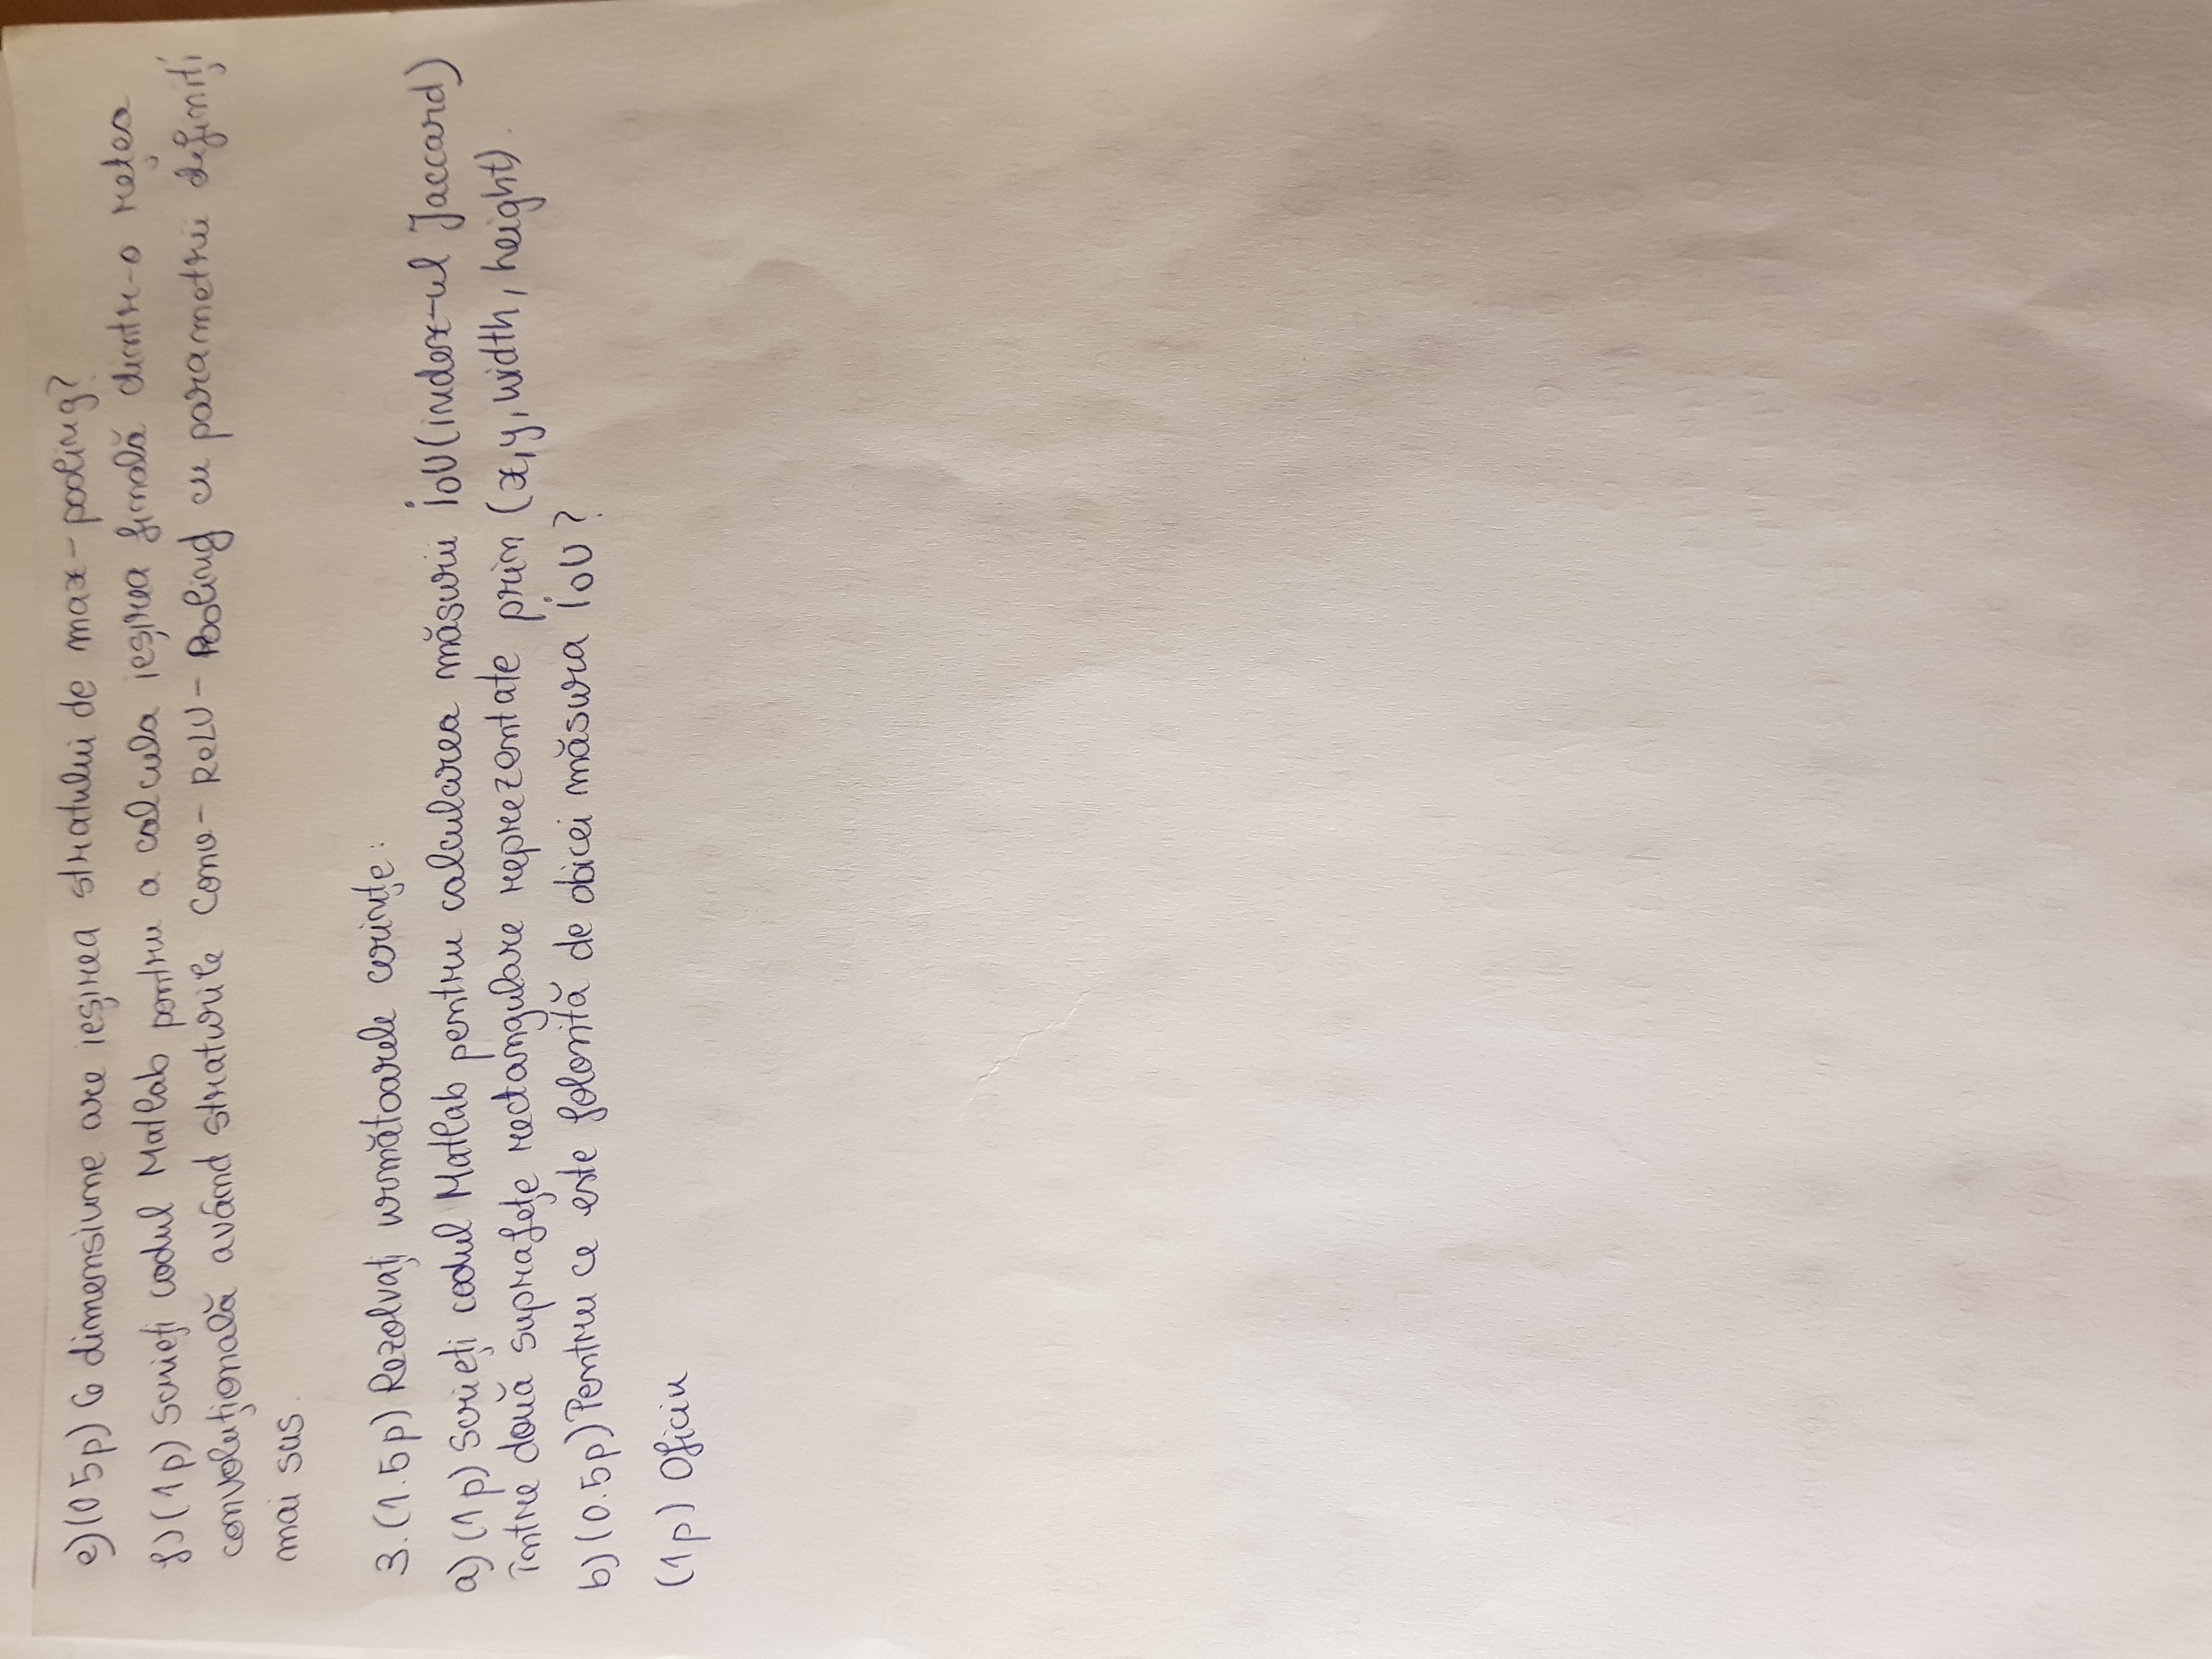 e) (0.5p) Ce dimensiune are ieșirea stratului de max-pooling?
f) (1p) Scrieți codul Matlab pentru a calcula ieșirea finală dintr-o rețea
convoluțională având straturile Conv - ReLU - Pooling cu parametrii definiți
mai sus.
3. (1.5p) Rezolvați următoarele cerințe:
a) (1p) Scrieți codul Matlab pentru calcularea măsurii IoU (index-ul Jaccard)
între două suprafețe rectangulare reprezentate prin (x, y, width, height).
b) (0.5p) Pentru ce este folosită de obicei măsura IoU?
(1p) Oficiu